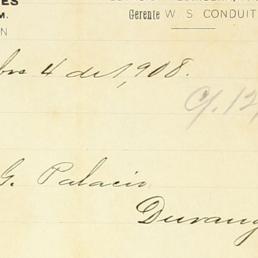 ES
M.
N
Gerente W. S. CONDUIT
bre 4 de 1,908.
C/. 12,
G. Palacio
Durang